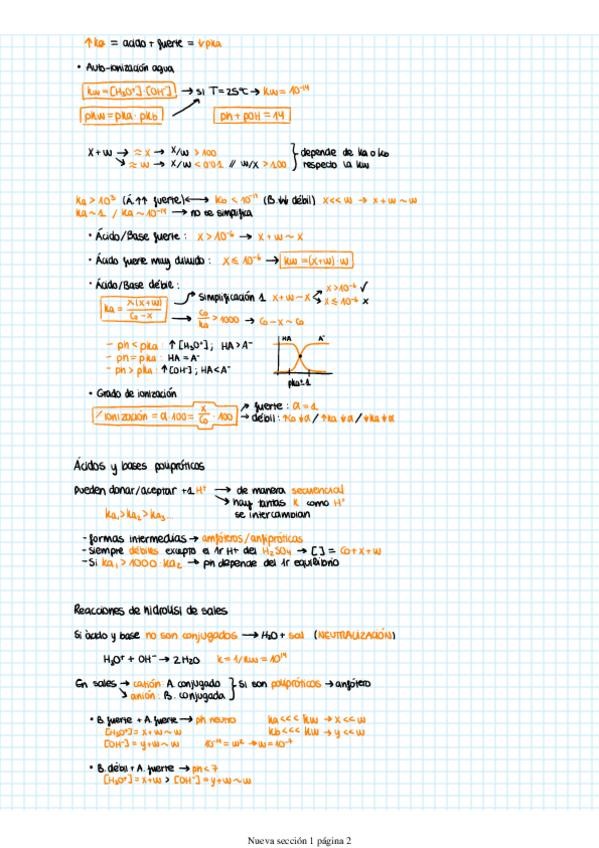 ↑ka = acido + fuerte = ↓pka
• Auto-ionización agua
kw = [H3O+]·[OH-] → si T=25ºC → kw = 10^-14
pkw = pka · pkb
ph + pOH = 14
x + w → ≈ x → x/w > 100
→ ≈ w → x/w < 0'01 // w/x > 100
depende de ka o kb
respecto la kw
ka > 10^3 (Á. ↑↑ fuerte) ↔ kb < 10^-17 (B. débil) x<<w → x+w ~ w
ka ~ 1 / ka ~ 10^-14 → no se simplifica
• Ácido/Base fuerte: x > 10^-6 → x + w ~ x
• Ácido fuerte muy diluido: x ≤ 10^-6 → kw = (x+w)·w
• Ácido/Base débil:
ka = x(x+w) / Co - x
Simplificación 1 x + w ~ x
x > 10^-6 ✓
x ≤ 10^-6 x
Co/ka > 1000 → Co - x ~ Co
- ph < pka: ↑[H3O+]; HA > A-
- ph = pka: HA = A-
- ph > pka: ↑[OH-]; HA < A-
HA A-
pka±1
• Grado de ionización
% ionización = α·100 = x/Co · 100
fuerte: α = 1
débil: ↑Co ↓α / ↑ka ↑α / ↓ka ↓α
Ácidos y bases polipróticos
Pueden donar/aceptar +1 H+ → de manera secuencial
→ hay tantas K como H+
se intercambian
ka1 > ka2 > ka3...
- formas intermedias → amfóteros/anfipróticas
- siempre débiles excepto el 1r H+ del H2SO4 → [ ] = Co + x + w
- Si ka1 > 1000·ka2 → ph depende del 1r equilibrio
Reacciones de hidrolisi de sales
Si ácido y base no son conjugados → H2O + sal (NEUTRALIZACIÓN)
H3O+ + OH- → 2H2O k = 1/kw = 10^14
En sales → catión: A. conjugado
→ anión: B. conjugada
Si son polipróticos → amfótero
• B. fuerte + A. fuerte → ph neutro
ka <<< kw → x << w
[H3O+] = x + w ~ w
kb <<< kw → y << w
[OH-] = y + w ~ w
10^-14 = w² → w = 10^-7
• B. débil + A. fuerte → ph < 7
[H3O+] = x + w > [OH-] = y + w ~ w
Nueva sección 1 página 2